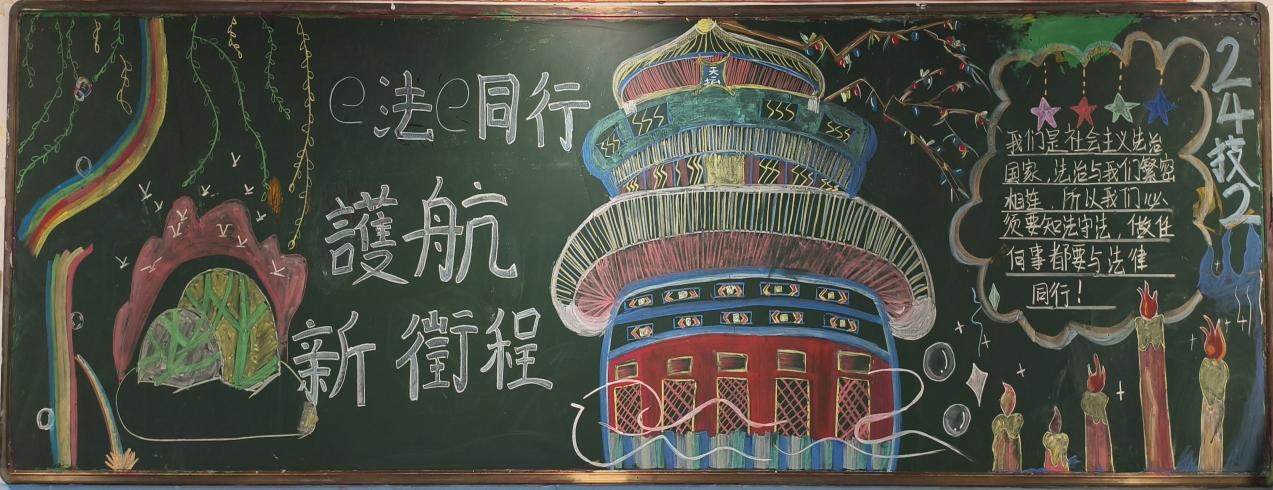 e法e同行
護航
新衛程
天坛
我们是社会主义法治
国家，法治与我们繁密
相连，所以我们必
须要知法守法，做任
何事都要与法律
同行！
24技2